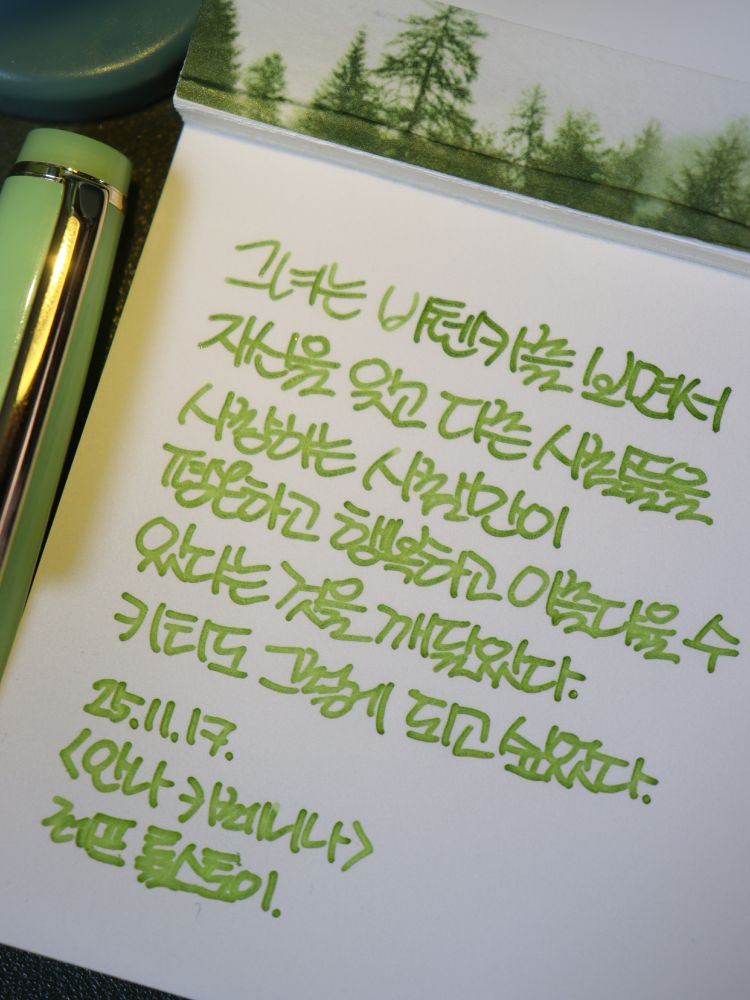 그녀는 바렌카를 보면서
자신을 잊고 다른 사람들을
사랑하는 사람만이
평온하고 행복하고 아름다울 수
있다는 것을 깨달았다.
키티도 그렇게 되고 싶었다.
25.11.17.
<안나 카레니나>
레프 톨스토이.